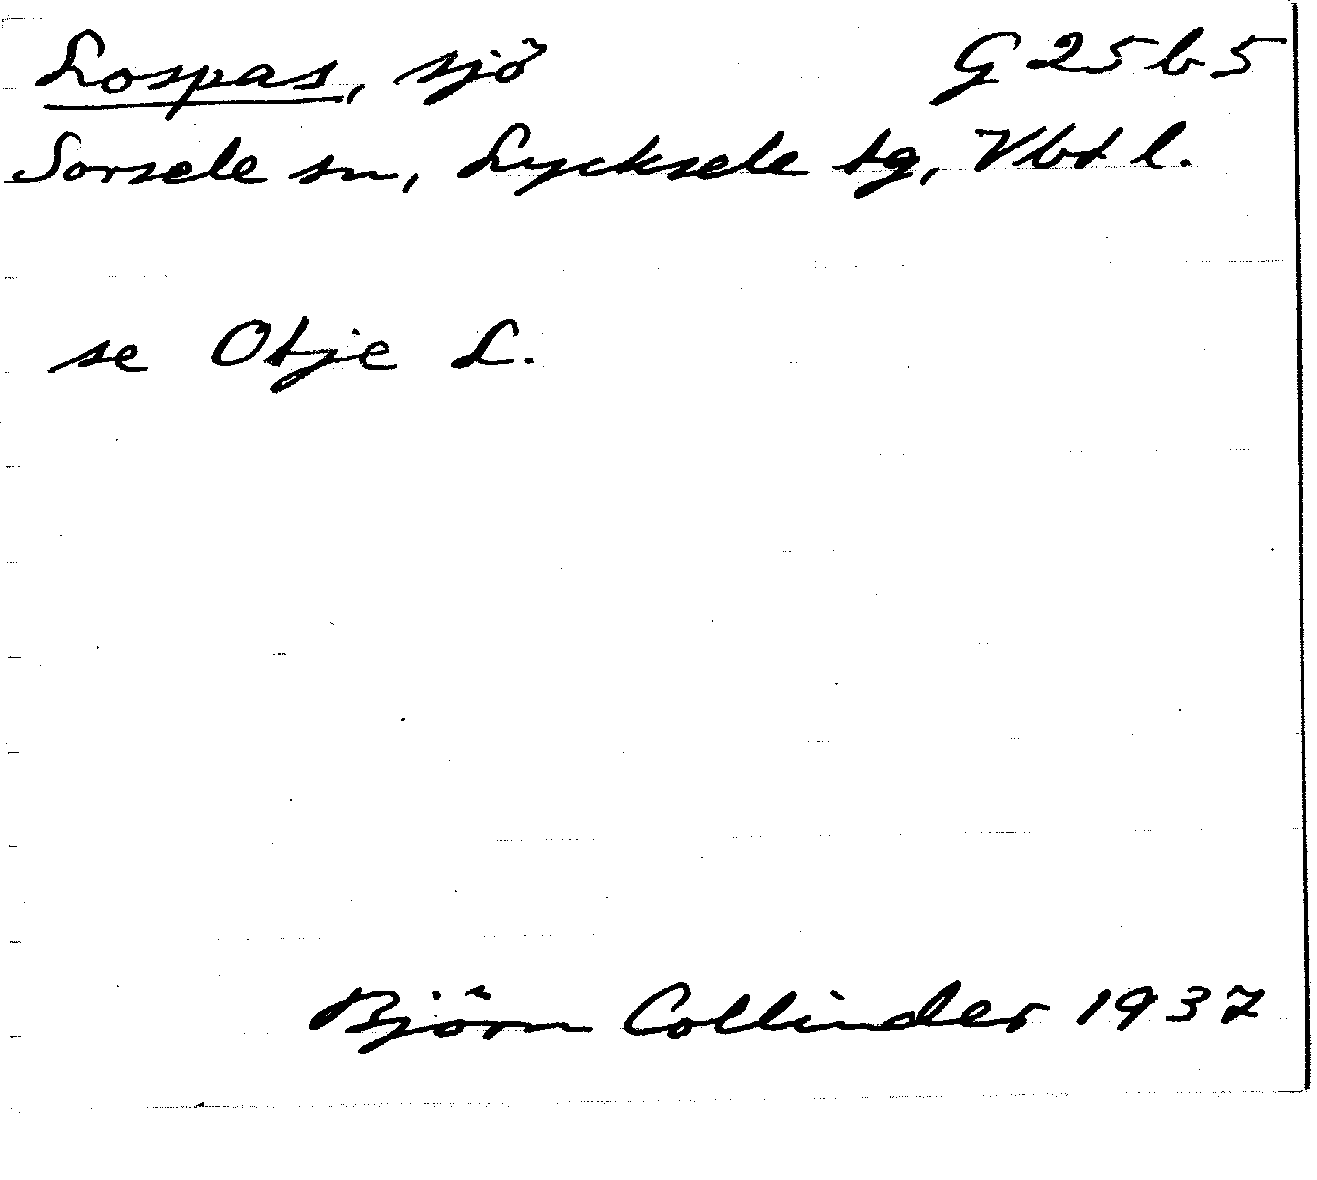 Lospas, sjö G 25 b 5
Sorsele sn, Lycksele tg, Vbt l.
se Otje L.
Björn Collinder 1937